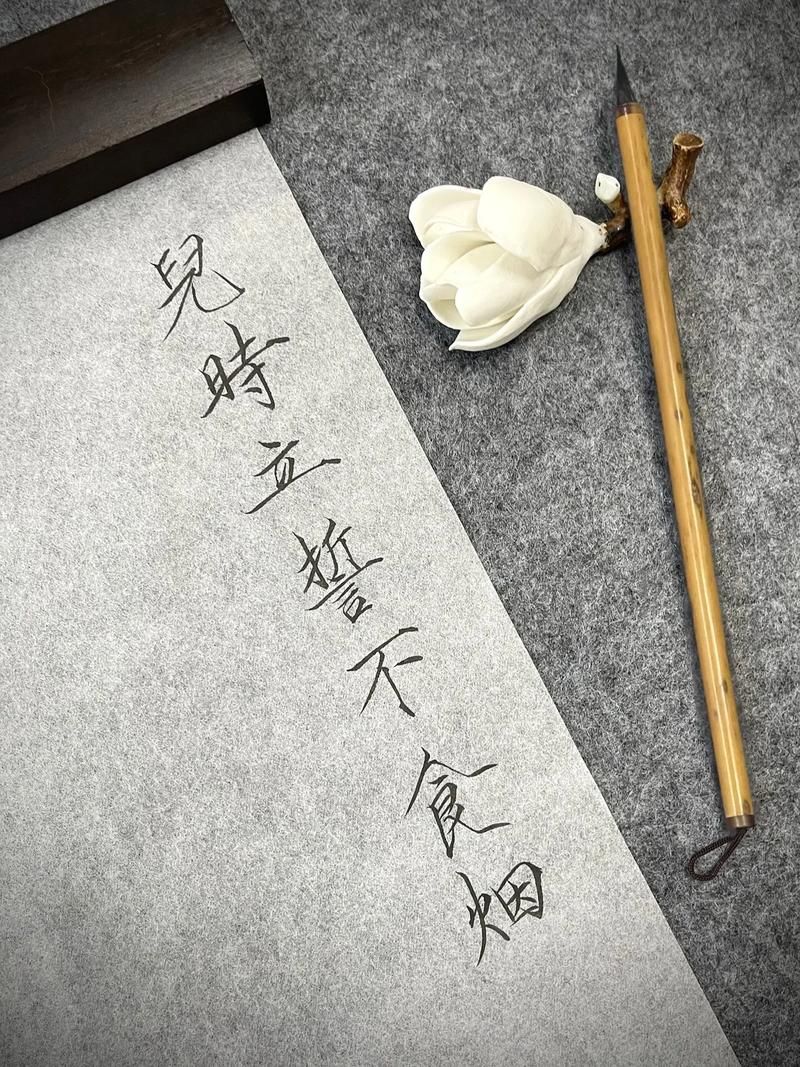 兒時立誓不食烟